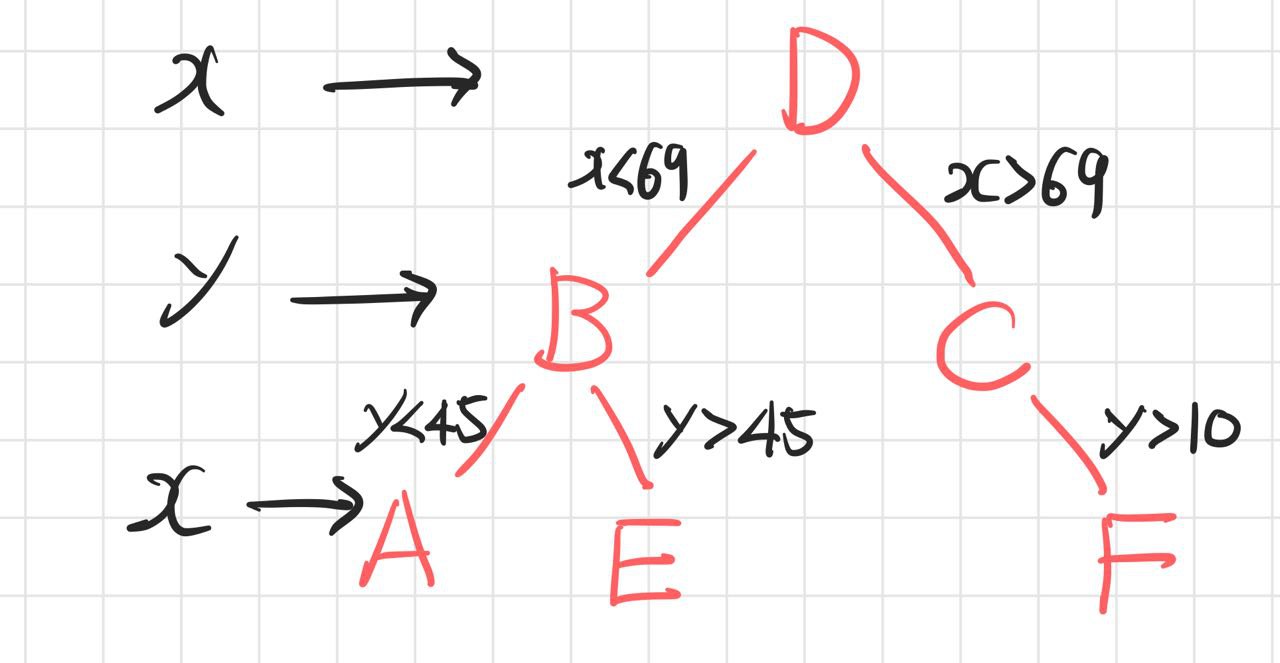 x → D
x<69 x>69
y → B C
y<45 y>45 y>10
x → A E F